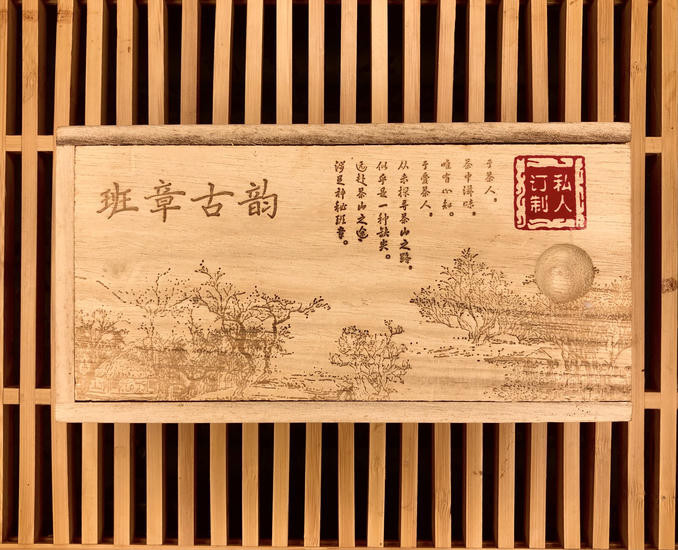 班章古韵
于茶人。
茶中得味。
唯有心知。
于爱茶人。
从未探寻茶山之路。
似乎是一种缺失。
远赴茶山之途。
涉足神秘班章。
私人
订制